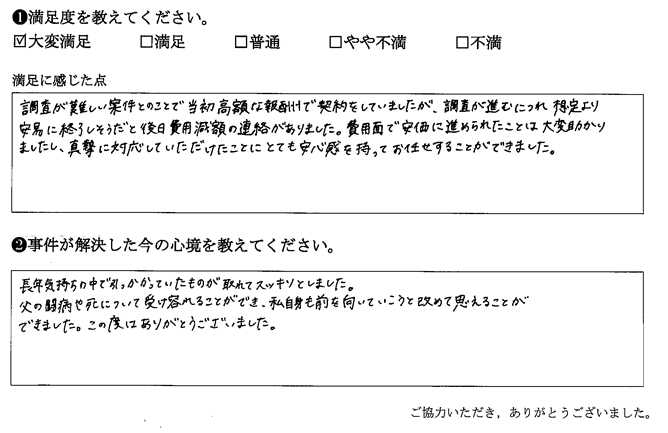 ❶満足度を教えてください。
☑大変満足 □満足 □普通 □やや不満 □不満
満足に感じた点
調査が難しい案件とのことで当初高額な報酬で契約をしていましたが、調査が進むにつれ想定より
安易に終了しそうだと後日費用減額の連絡がありました。費用面で安価に進められたことは大変助かり
ましたし、真摯に対応していただけたことにとても安心感を持ってお任せすることができました。
❷事件が解決した今の心境を教えてください。
長年気持ちの中で引っかかっていたものが取れてスッキリとしました。
父の闘病や死について受け容れることができ、私自身も前を向いていこうと改めて思えることが
できました。この度はありがとうございました。
ご協力いただき，ありがとうございました。